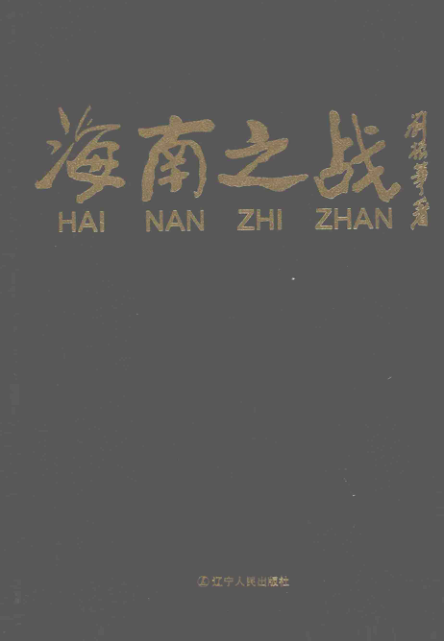 海南之战
HAI NAN ZHI ZHAN
刘振华著
辽宁人民出版社